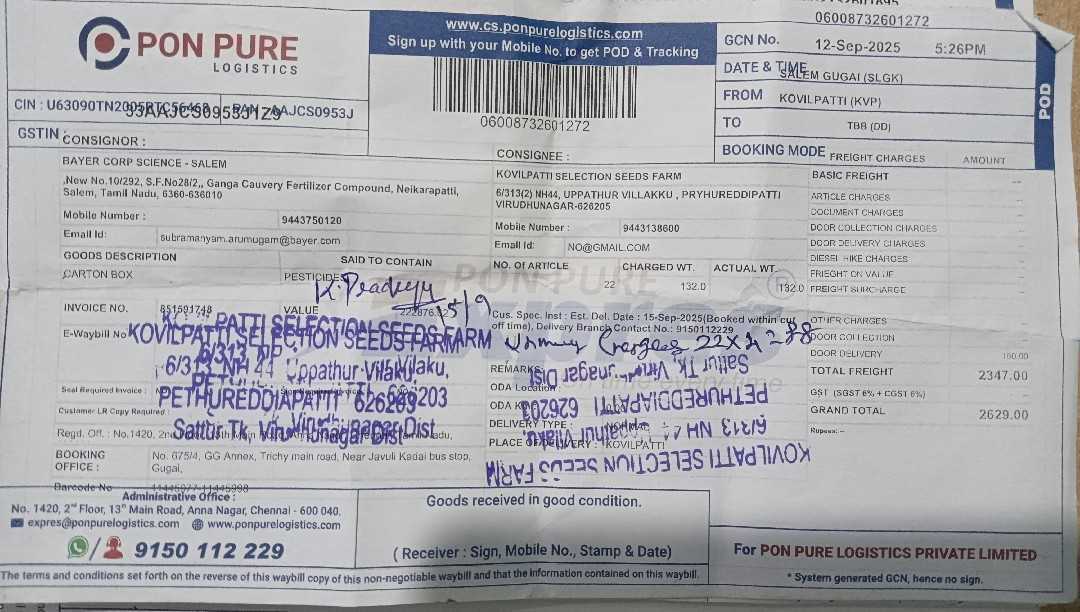 PON PURE
LOGISTICS
www.cs.ponpurelogistics.com
Sign up with your Mobile No. to get POD & Tracking
06008732601272
GCN No.
06008732601272
12-Sep-2025 5:26PM
DATE & TIME
SALEM GUGAI (SLGK)
FROM
KOVILPATTI (KVP)
TO
TBB (DD)
BOOKING MODE
POD
CIN : U63090TN2005PTC56468 PAN : AAJCS0953J
33AAJCS0953J1Z9
GSTIN :
CONSIGNOR :
BAYER CORP SCIENCE - SALEM
,New No.10/292, S.F.No28/2,, Ganga Cauvery Fertilizer Compound, Neikarapatti,
Salem, Tamil Nadu, 6360-636010
Mobile Number : 9443750120
Email Id: subramanyam.arumugam@bayer.com
CONSIGNEE :
KOVILPATTI SELECTION SEEDS FARM
6/313(2) NH44, UPPATHUR VILLAKKU , PRYHUREDDIPATTI
VIRUDHUNAGAR-626205
Mobile Number : 9443138600
Email Id: NO@GMAIL.COM
FREIGHT CHARGES AMOUNT
BASIC FREIGHT
ARTICLE CHARGES
DOCUMENT CHARGES
DOOR COLLECTION CHARGES
DOOR DELIVERY CHARGES
DIESEL HIKE CHARGES
FRIEGHT ON VALUE
FREIGHT SURCHARGE
OTHER CHARGES
DOOR COLLECTION
DOOR DELIVERY
TOTAL FREIGHT 2347.00
GST (SGST 6% + CGST 6%)
GRAND TOTAL 2629.00
Rupees:--
GOODS DESCRIPTION SAID TO CONTAIN
CARTON BOX PESTICIDE
NO. OF ARTICLE CHARGED WT. ACTUAL WT.
22 132.0 132.0
PON PURE
INVOICE NO. 851591748 VALUE
15/9
Cus. Spec. Inst : Est. Del. Date : 15-Sep-2025(Booked within cut
off time), Delivery Branch Contact No. : 9150112229
Charges 22x4 = 88
E-Waybill No
KOVILPATTI SELECTION SEEDS FARM
6/313 NH 44 Uppathur Vilakku,
PETHUREDDIAPATTI 626203
Sattur Tk, Virudhunagar Dist
Seal Required Invoice :
Customer LR Copy Required
REMARKS
ODA Location
DELIVERY TYPE :
PLACE OF DELIVERY : KOVILPATTI
time everytime
KOVILPATTI SELECTION SEEDS FARM
6/313 NH
PETHUREDDIAPATTI 626203
Regd. Off. : No.1420,
BOOKING
OFFICE :
No. 675/4, GG Annex, Trichy main road, Near Javuli Kadai bus stop,
Gugai,
Barcode No 11445977-11445998
Administrative Office :
No. 1420, 2nd Floor, 13th Main Road, Anna Nagar, Chennai - 600 040.
expres@ponpurelogistics.com www.ponpurelogistics.com
9150 112 229
Goods received in good condition.
( Receiver : Sign, Mobile No., Stamp & Date)
For PON PURE LOGISTICS PRIVATE LIMITED
* System generated GCN, hence no sign.
The terms and conditions set forth on the reverse of this waybill copy of this non-negotiable waybill and that the information contained on this waybill.